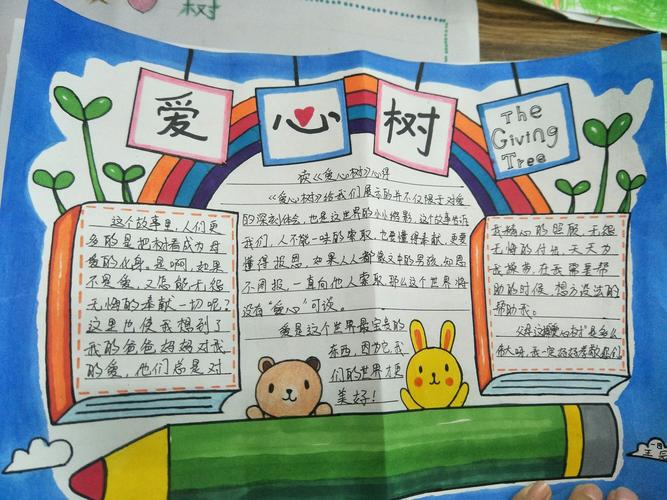 树
爱
心
树
The
Giving
Tree
读《爱心树》心得
《爱心树》给我们展示的并不仅限于对爱
的深刻体会，也是这世界的小小缩影，这故事告诉
我们，人不能一味的索取，也要懂得奉献，更要
懂得报恩，如果人人都像文中的男孩，知恩
不图报，一直向他人索取，那么这个世界将
没有“爱心”可谈。
爱是这个世界最宝贵的
东西，因为它，我
们的世界才更
美好！
这个故事里，人们更
多的是把树看成为母
爱的化身。是啊，如果
不是爱，又怎能无怨
无悔的奉献一切呢？
这里也使我想到了
我的爸爸，妈妈对我
的爱，他们总是对
我精心的照顾，无怨
无悔的付出，天天为
我操劳，在我需要帮
助的时候，想方设法的
帮助我。
父母这棵“爱心树”是多么
伟大呀，我一定好好孝敬